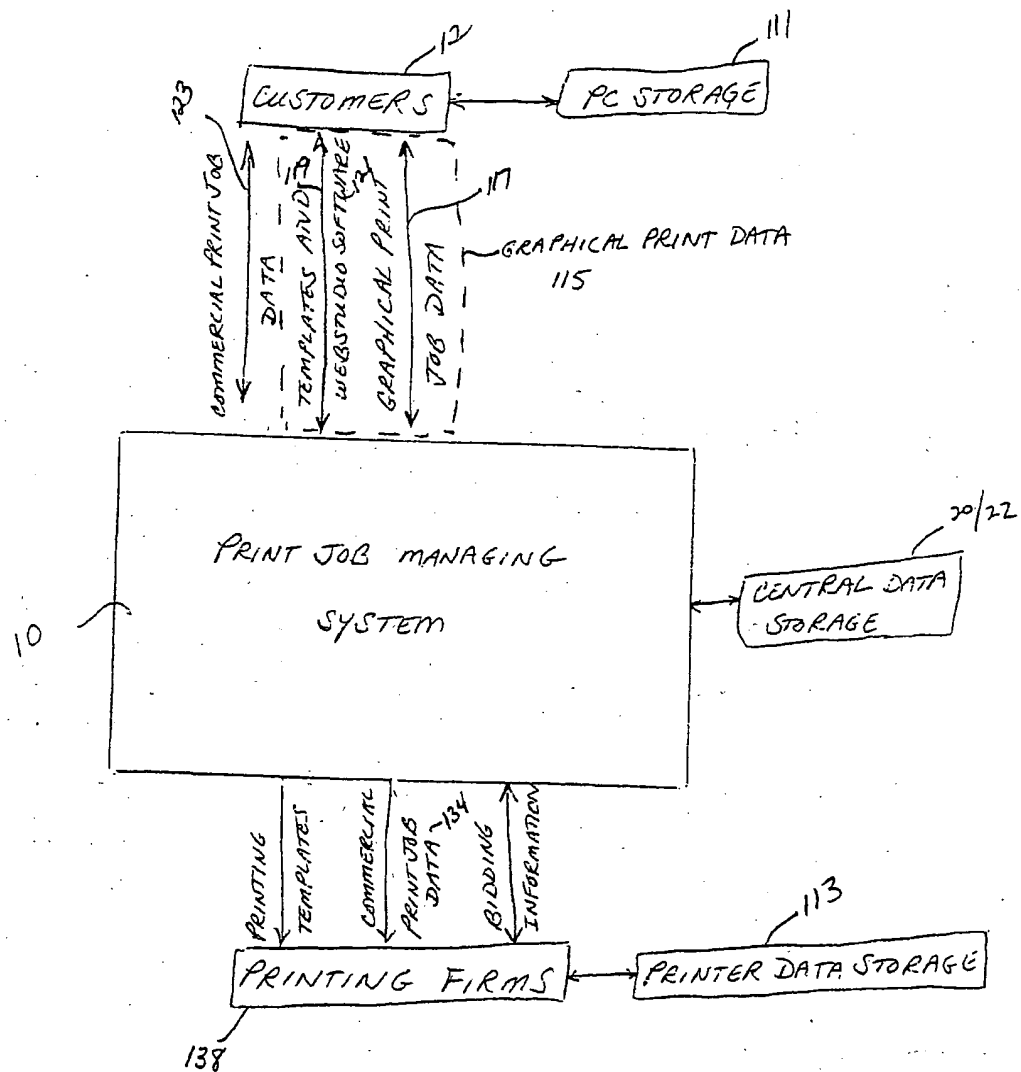 12
111
CUSTOMERS
PC STORAGE
123
COMMERCIAL PRINT JOB
DATA
119
TEMPLATES AND
WEBSTUDIO SOFTWARE
GRAPHICAL PRINT
JOB DATA
117
GRAPHICAL PRINT DATA
115
PRINT JOB MANAGING
SYSTEM
10
20/22
CENTRAL DATA
STORAGE
PRINTING
TEMPLATES
COMMERCIAL
PRINT JOB
DATA 134
BIDDING
INFORMATION
113
PRINTING FIRMS
PRINTER DATA STORAGE
138